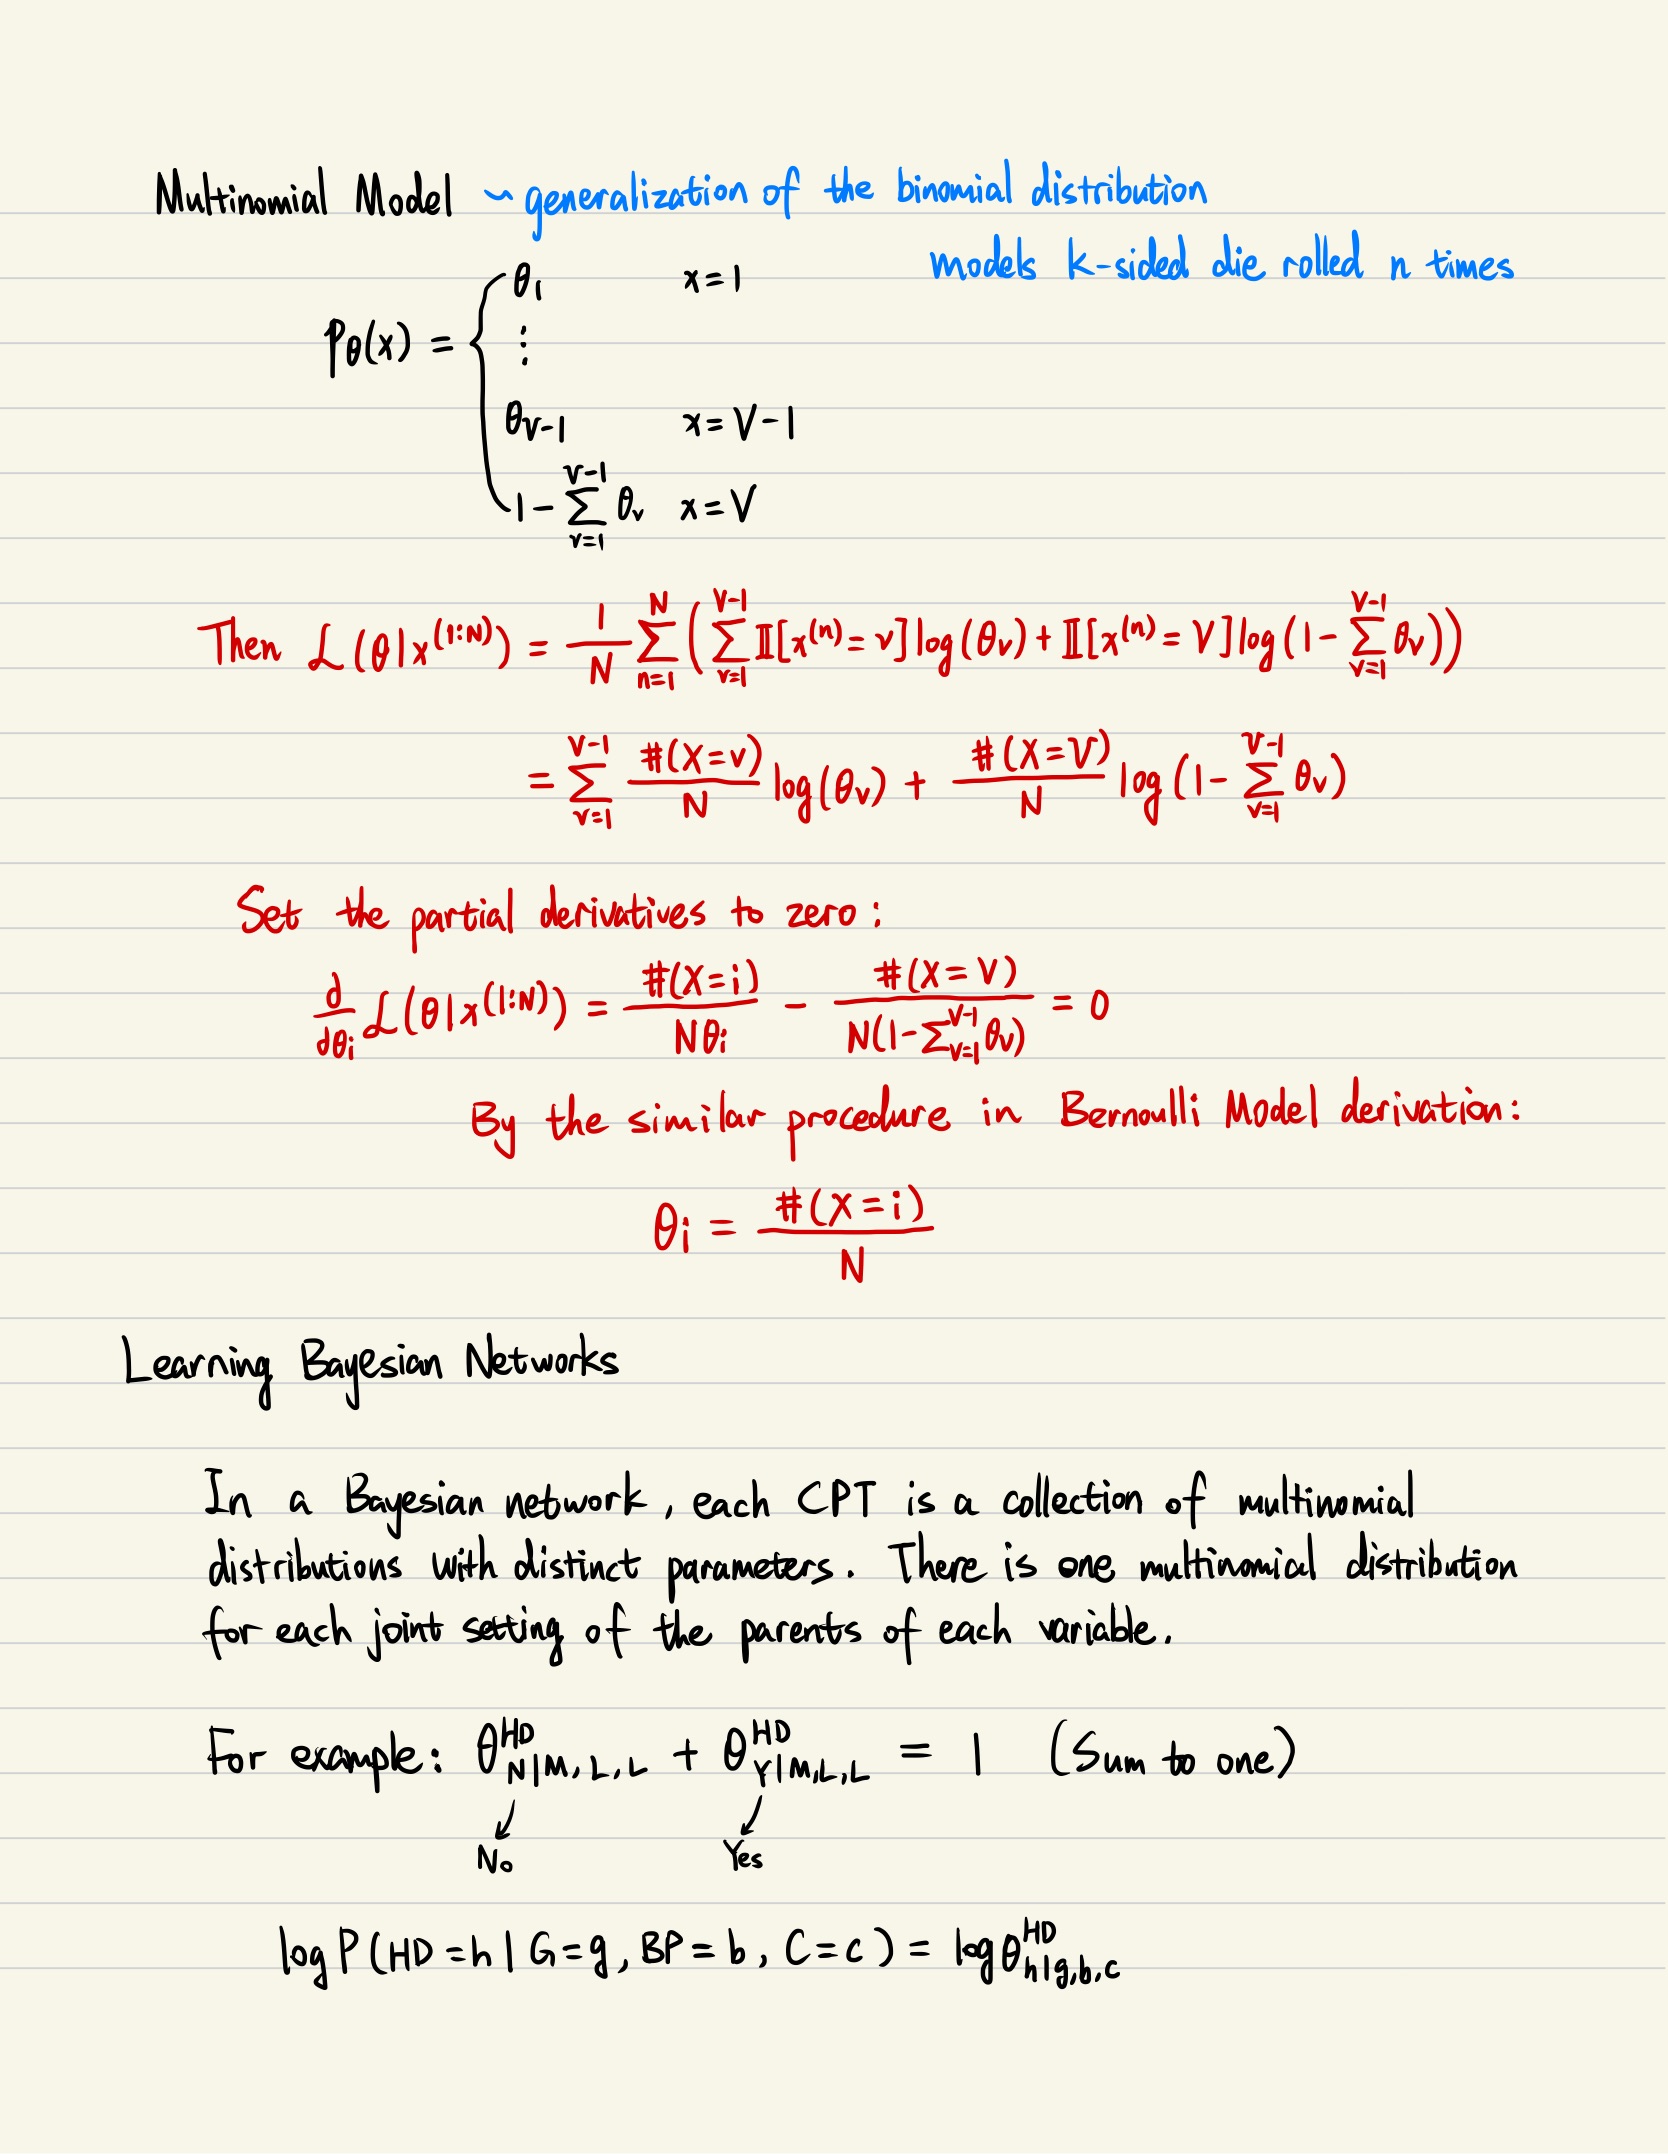 Multinomial Model ~ generalization of the binomial distribution
models k-sided die rolled n times
P_θ(x) = { θ_1   x=1
⋮
θ_{V-1}   x=V-1
1-∑_{v=1}^{V-1} θ_v   x=V
Then ℒ(θ|x^{(1:N)}) = \frac{1}{N} ∑_{n=1}^{N} (∑_{v=1}^{V-1} 𝕀[x^{(n)}=v] log(θ_v) + 𝕀[x^{(n)}=V] log(1-∑_{v=1}^{V-1} θ_v))
= ∑_{v=1}^{V-1} \frac{#(X=v)}{N} log(θ_v) + \frac{#(X=V)}{N} log(1-∑_{v=1}^{V-1} θ_v)
Set the partial derivatives to zero:
\frac{d}{dθ_i} ℒ(θ|x^{(1:N)}) = \frac{#(X=i)}{Nθ_i} - \frac{#(X=V)}{N(1-∑_{v=1}^{V-1} θ_v)} = 0
By the similar procedure in Bernoulli Model derivation:
θ_i = \frac{#(X=i)}{N}
Learning Bayesian Networks
In a Bayesian network, each CPT is a collection of multinomial
distributions with distinct parameters. There is one multinomial distribution
for each joint setting of the parents of each variable.
For example: θ^{HD}_{N|M,L,L} + θ^{HD}_{Y|M,L,L} = 1 (Sum to one)
↙ ↙
No Yes
log P(HD=h|G=g, BP=b, C=c) = log θ^{HD}_{h|g,b,c}